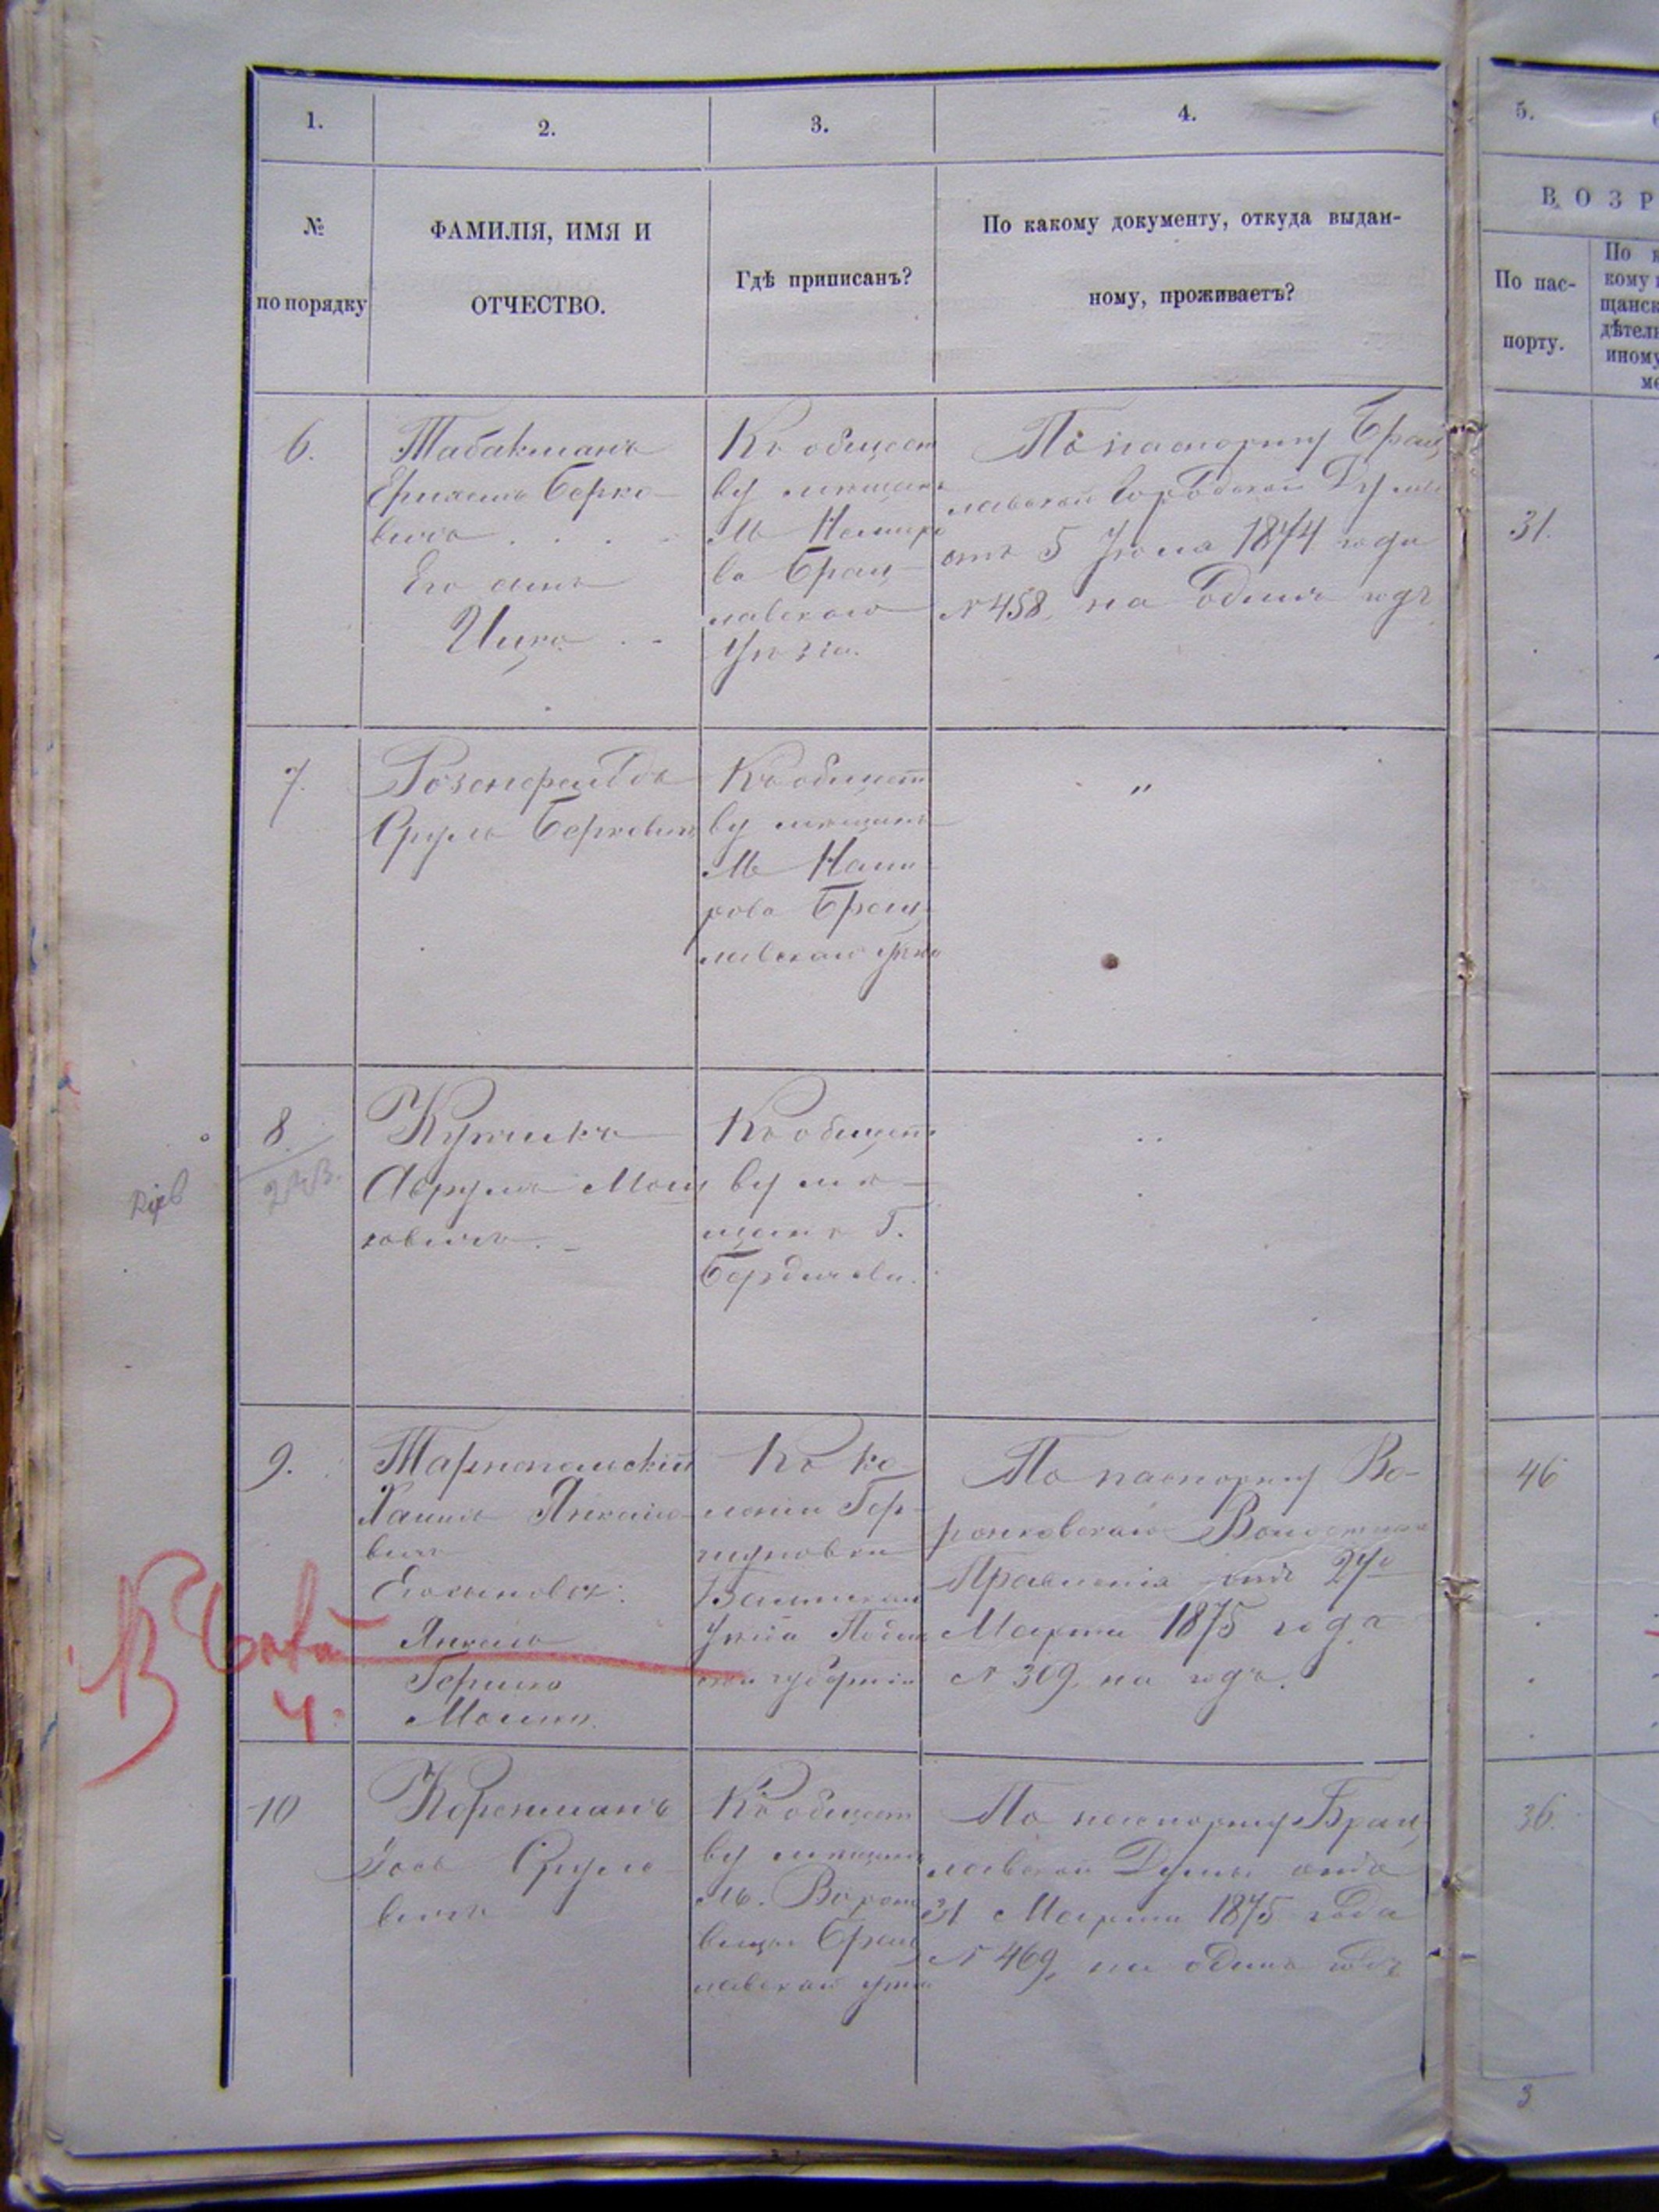 1.
2.
3.
4.
5.
№
по порядку
ФАМИЛІЯ, ИМЯ И
ОТЧЕСТВО.
Гдѣ приписанъ?
По какому документу, откуда выдан-
ному, проживаетъ?
ВОЗР
По пас-
порту.
По к
кому
щанск
дѣтел
иному
ме
6.
Табакманъ
Берко-
вичъ
Его сынъ
Ицко
Къ общест
ву мѣщанъ
М Немиро
ва Брац-
лавскаго
уѣзда.
По паспорту Брац
лавской Городской Думы
отъ 5 Іюля 1874 года
№ 458 на Одинъ годъ
31.
7.
Розенфельдъ
Сруль Берковичъ
Къ общест
ву мѣщанъ
М Неми
рова Брац
лавскаго уѣзда
"
8
Аврумъ Мош
ковичъ
Къ общест
ву мѣ-
щанъ Г.
Бердичева.
9.
Тарнопольскій
Хаимъ Янкеле-
вичъ
Его сыновья:
Янкель
Гершко
Мошко
Къ ко
лоніи
уѣзда Подоль
ской губерніи
По паспорту Во-
ронковскаго Волостнаго
Правленія отъ 27го
Марта 1875 года
№ 309 на годъ.
46
В
4.
10
Коренманъ
Сруле-
вичъ
Къ общест
ву мѣщанъ
М. Вороно
вицы Брац
лавскаго уѣзда
По паспорту Брац
лавской Думы отъ
31 Марта 1875 года
№ 469 на одинъ годъ
36.